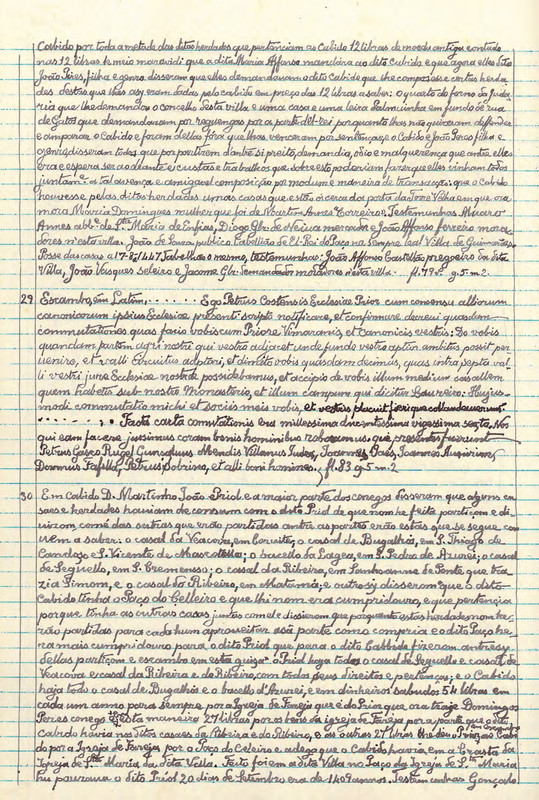 Cabido por toda a metade das ditas herdades que pertenciam ao Cabido 12 libras de moeda antiga contado
nas 12 libras e meio maravidi que a dita Maria Affonso mandára ao dito Cabido e que agora elles ditos
João Peres, filha e genro disseram que elles demandavam o dito Cabido que lhe compozesse certas herda
des destas que lhas asy eram dadas pelo Cabido em preço das 12 libras a saber: o quarto do forno da Juda-
ria que lhe demandou o concelho desta villa e uma casa e uma leira Palmcinha em fundo de rua
de Gatos que demandavam por reguengos por a parte del-rei porquanto lhas nõ quizeram deffender
e amparar o Cabido e foram dellas fóra que lhas venceram por sentenças; e o Cabido e João Peres filha e
genro disseram todos que por partirem dantre si preito, demanda, odio e malquerença que antre elles
era e espera ser ao deante e custas e trabalhos que sobre esto poderiam fazer que elles vinham todos
juntam.te a tal avença e amigavel composição per modum e maneira de transacção: que o Cabido
houvesse pelas ditas herdades umas casas que estão á cerca da porta da Torre Velha em que ora
mora Maria Domingues mulher que foi de Martim Annes Correeiro. Testemunhas Alvaro
Annes abb.e de S. Maria de Infias, Diogo Glz de Neiva mercador e João Affonso ferreiro mora-
dores n'esta villa. João de Sousa, publico Tabellião de El-Rei do Paço na sempre leal Villa de Guimarães
Posse das casas a 17-8-1447, Tabellião o mesmo, testemunhas: João Affonso Castellão pregoeiro da dita
Villa, João Vasques seleiro e Jacome Glz Semeador moradores n'esta villa. fl. 79 v.º g. 5 m. 2
29 Escambo, em Latim, . . . . . . Ego Petrus Costensis Ecclesiae Prior cum consensu alliorum
canonicorum ipsius Eclesiae presenti scripto notificare, et confirmare decrevi quasdam
commutationes quas facio vobiscum Priore Vimaranis et Canonicis vestris: Do vobis
quandam partem agri nostri qui vestro adjacet unde fundo vestro aptum ambitus possit per
venire, et valli Circuitus adoptari, et dimito vobis quasdam decimas, quas intra septa val-
li vestri jure Ecclesiae nostrae possidebamus, et accipio de vobis illum medium casallem
quem habetis sub nostro Monasterio, et illum campum qui dicitur Loureiro. Hujus-
modi commutatio michi et sociis meis vobis, et vestris placuit fieri que collaudaverunt
. . . . . . . Facta carta commutationis era millessima ducentessima vigessima sexta. Nos
qui eam facere jussimus coram bonis hominibus roboramus: que presentes fuerunt
Petrus Gasco Rugel Gunsalvus Mendis Villanus Judex, Joannes Gaes, Joannes Auruirivus,
Domnus Fafilla, Petrus Sobrino, et alli boni homines. fl. 83 g. 5 m. 2
30 Em Cabido D. Martinho João Priol e a maior parte dos conegos disseram que alguns ca
saes e herdades haviam de consum com o dito Priol de que nom he feita partiçom e di
vizom, como das outras que erão partidas antre as partes erão estas que se segue con
vem a saber: o casal da Veacova, em Corvite; o casal de Bugalhós, em S. Thiago de
Candoso e S. Vicente de Mascotellos; o bacello da Lagea, em S. Pedro de Azurei; o casal
de Seguello, em S. Cremenso; o casal da Ribeira, em Sanhoanne de Ponte, que tra-
zia Simom, e o casal do Ribeiro, em Matamá; e outrosy disserom que o dito
Cabido tinha o Paço do Celleiro e que lhi nom era cumpridouro, e que pertencia
porque tinha as outras casas juntas com ele e disserom que porquanto estas herdades nom he-
rão partidas para cada hum aproveitar a sá parte como compria e o dito Paço he
ra mais cumpridouro para o dito Priol que para o dito Cabbido fizerom antresy
dellas partiçom e escambo em esta quisa: o Priol haja todo o casal de Seguello e casal de
Veacova e casal da Ribeira e do Ribeiro, com todos seus direitos e pertenças; e o Cabido
haja todo o casal de Bugalhós e o bacello d'Azurei, e em dinheiros sabudos 54 libras em
cada um anno para sempre por a Igreja de Fareja que é do Priol que ora traje Domingos
Peres conego desta maneira 27 libras por os bens da igreja de Fareja por a parte que o dito
Cabido havia nos ditos casaes da Ribeira e do Ribeiro, e as outras 27 libras lhe deu o Priol ao Cabi
do por a Igreja de Fareja por o Paço do Celeiro e adega que o Cabido havia em a Crasta da
Igreja de S.ta Maria da dita Villa. Feito foi em a dita Villa no Paço da Igreja de S.ta Maria
hu pousava o dito Priol 20 dias de Setembro era de 1409 annos. Testemunhas Gonçalo